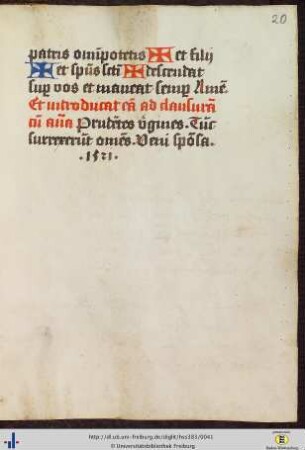 20
patris om̄ipotētis ✠ et filij
✠ et spūs sctī ✠ descendat
sup̄ vos et maneat semp̄ Amē.
Et introducat eā ad clausurā
cū aña Prudētes v̄gines. Tūc
surrexerūt om̄es. Veni spōsa.
.1521.
http://dl.ub.uni-freiburg.de/diglit/hs1103/0041
© Universitätsbibliothek Freiburg